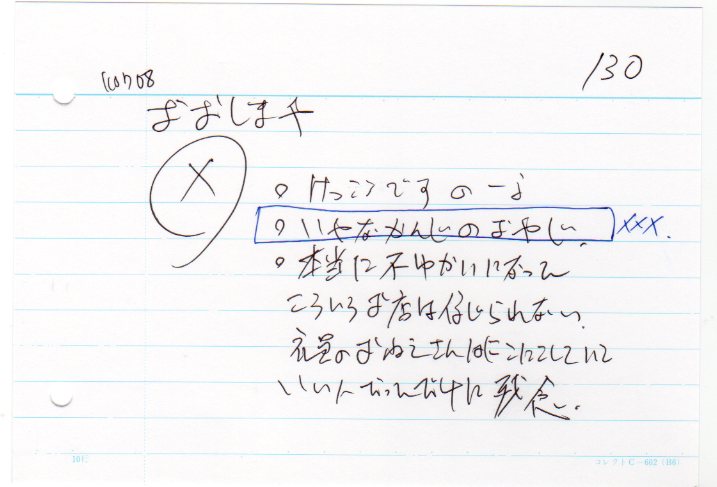 130
おおしまや
×
○ けっこうです の一言
○ いやなかんじのおやじ. ×××.
○ 本当に不ゆかいになって
こういうお店は信じられない.
店員のおねえさんはにこにこしていて
いい人だっただけに残念.
101
コレクト C-602 (B6)